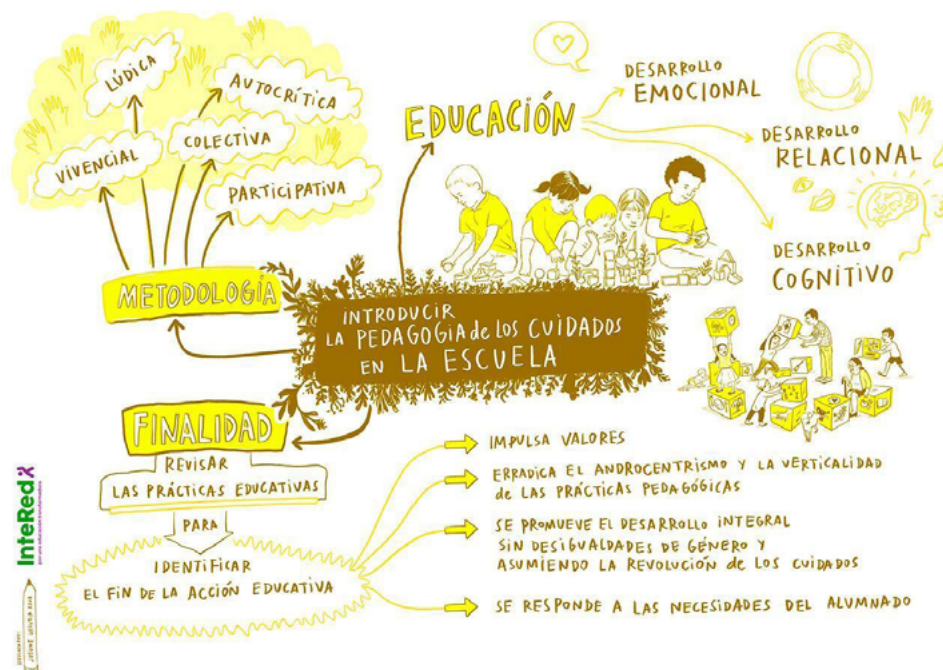 LÚDICA
AUTOCRÍTICA
VIVENCIAL
COLECTIVA
PARTICIPATIVA
METODOLOGÍA
EDUCACIÓN
DESARROLLO
EMOCIONAL
DESARROLLO
RELACIONAL
DESARROLLO
COGNITIVO
INTRODUCIR
LA PEDAGOGIA de LOS CUIDADOS
EN LA ESCUELA
FINALIDAD
REVISAR
LAS PRÁCTICAS EDUCATIVAS
PARA
IDENTIFICAR
EL FIN DE LA ACCIÓN EDUCATIVA
IMPULSA VALORES
ERRADICA EL ANDROCENTRISMO Y LA VERTICALIDAD
de LAS PRÁCTICAS PEDAGÓGICAS
SE PROMUEVE EL DESARROLLO INTEGRAL
SIN DESIGUALDADES DE GÉNERO Y
ASUMIENDO LA REVOLUCIÓN DE LOS CUIDADOS
SE RESPONDE A LAS NECESIDADES DEL ALUMNADO
InteRed
por una educación transformadora